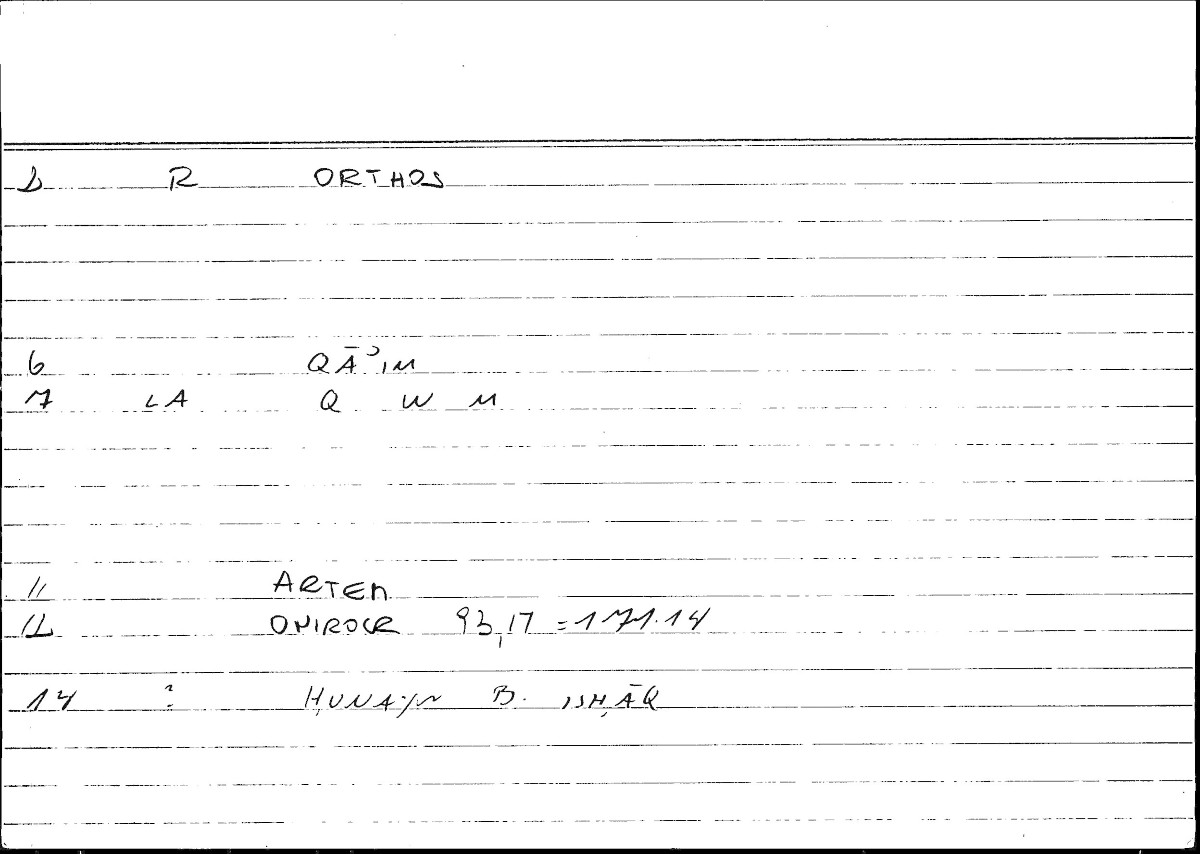 1 R ORTHOS
6 QĀʾIM
7 LA Q W M
11 ARTEM
12 ONIROCR 93,17 = 171.14
14 ? ḤUNAYN B. ISḤĀQ